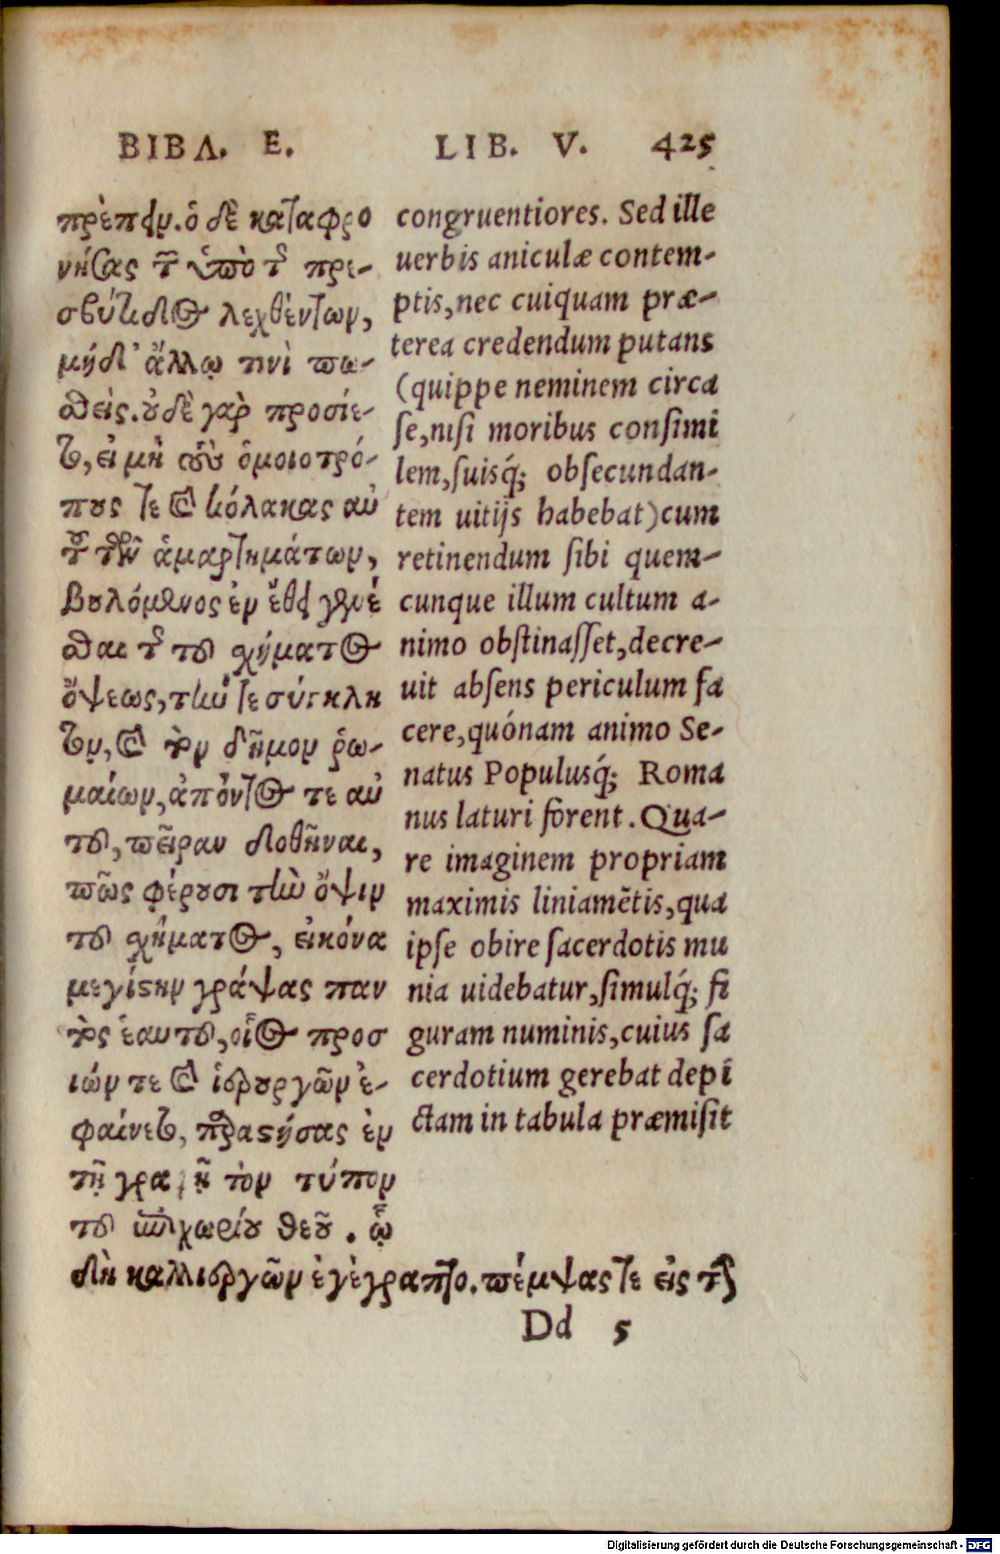 ΒΙΒΛ. Ε.
πρέπειν. ὁ δὲ καταφρο
νήσας τῶν ὑπὸ τοῦ πρε-
σβύτιδος λεχθέντων,
μήδ' ἄλλῳ τινὶ πει-
σθείς. οὐδὲ γὰρ προσίε-
το, εἰ μὴ τοὺς ὁμοιοτρό-
πους τε καὶ κόλακας αὐ
τοῦ τῶν ἁμαρτημάτων,
βουλόμενος ἐν ἔθει γενέ
σθαι τοῦ τοῦ χήματος
ὄψεως, τήν τε σύγκλη
τον, καὶ τὸν δῆμον ῥω-
μαίων, ἀπόντος τε αὐ
τοῦ, πεῖραν δοθῆναι,
πῶς φέρουσι τὴν ὄψιν
τοῦ χήματος, εἰκόνα
μεγίστην γράψας παν
τὸς ἑαυτοῦ, οἷος προσ
ιών τε καὶ ἱερουργῶν ἐ-
φαίνετο, παραστήσας ἐν
τῇ γρα ῇ τὸν τύπον
τοῦ ἐπιχωρίου θεοῦ. ᾧ
δὴ καλλιεργῶν ἐγέγραπτο. πέμψας τε εἰς τὴν
LIB. V. 425
congruentiores. Sed ille
uerbis aniculæ contem-
ptis, nec cuiquam præ-
terea credendum putans
(quippe neminem circa
se, nisi moribus consimi
lem, suisq́; obsecundan-
tem uitijs habebat) cum
retinendum sibi quem-
cunque illum cultum a-
nimo obstinasset, decre-
uit absens periculum fa
cere, quónam animo Se-
natus Populusq́; Roma
nus laturi forent. Qua-
re imaginem propriam
maximis liniamẽtis, qua
ipse obire sacerdotis mu
nia uidebatur, simulq́; fi
guram numinis, cuius sa
cerdotium gerebat depi
ctam in tabula præmisit
Dd 5
Digitalisierung gefördert durch die Deutsche Forschungsgemeinschaft - DFG